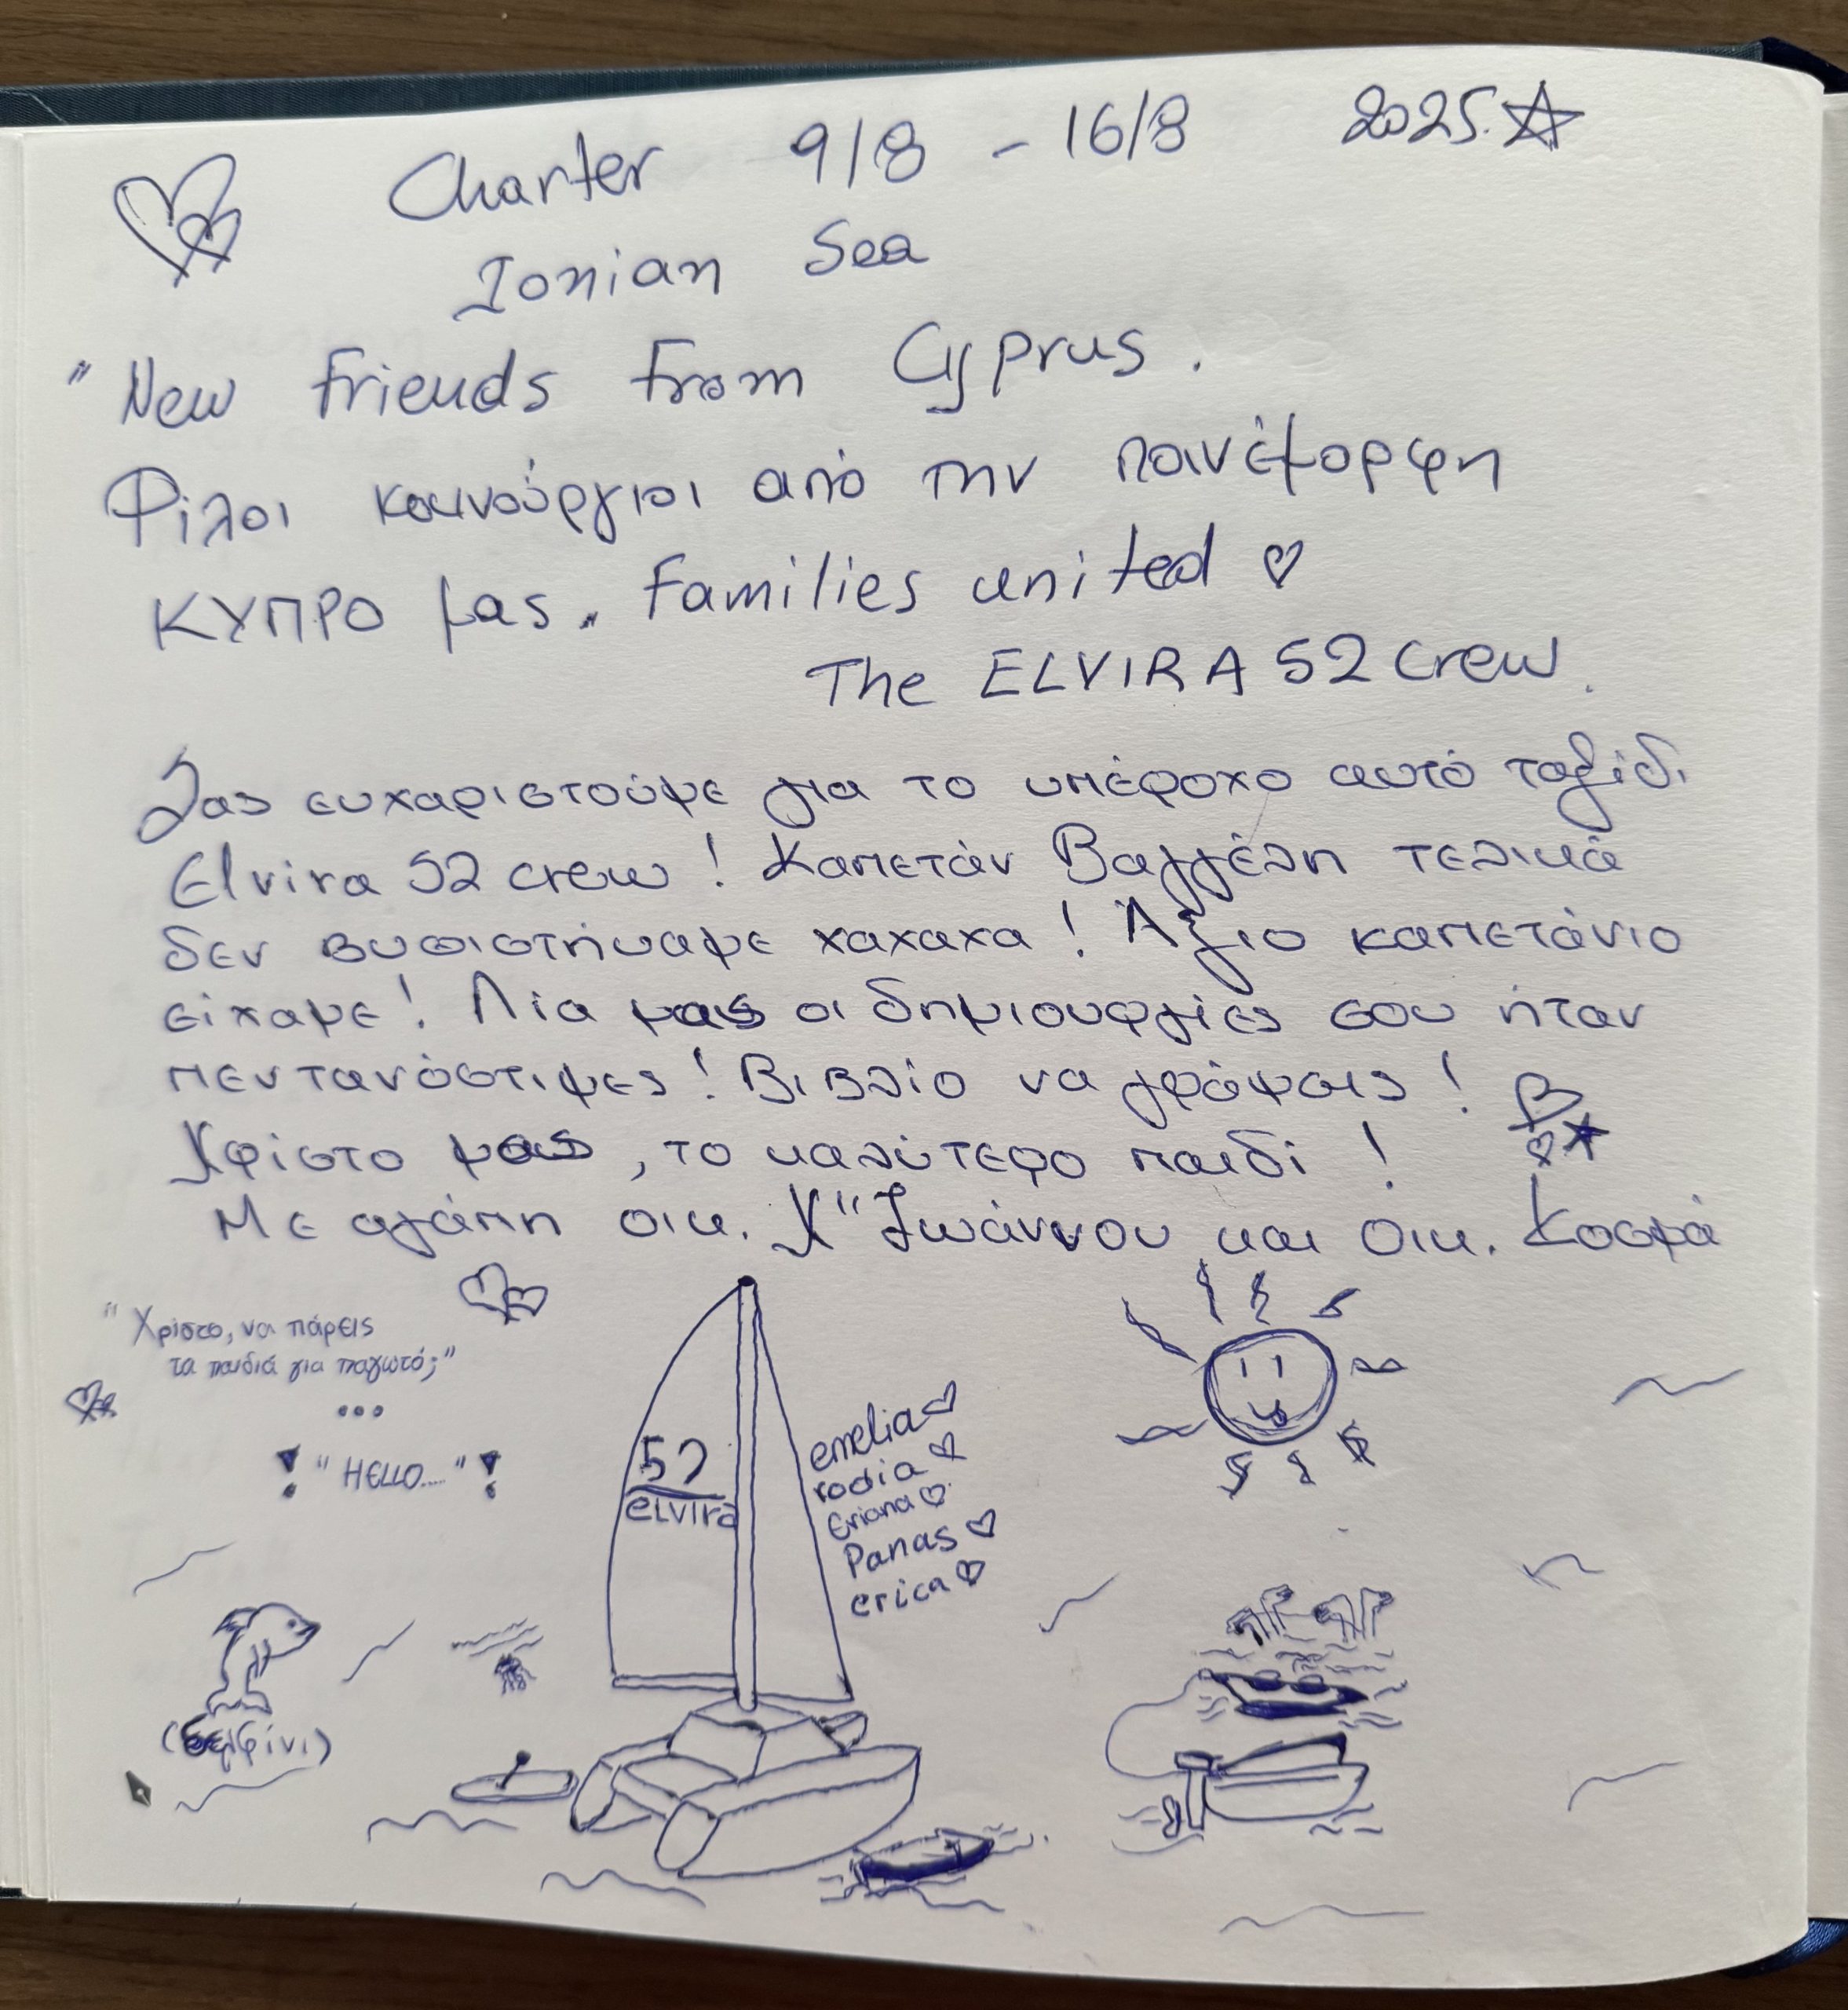 Charter 9/8 - 16/8 2025.
Ionian Sea
" New friends from Cyprus.
Φίλοι καινούργιοι από την πανέμορφη
ΚΥΠΡΟ μας. families united
The ELVIRA 52 crew.
Σας ευχαριστούμε για το υπέροχο αυτό ταξίδι
Elvira 52 crew! Καπετάν Βαγγέλη τελικά
δεν βυθιστήκαμε χαχαχα! Άξιο καπετάνιο
είχαμε! Λία μας οι δημιουργίες σου ήταν
πεντανόστιμες! Βιβλίο να γράψεις!
Χρίστο μας, το καλύτερο παιδί!
Με αγάπη οικ. Χ"Ιωάννου και οικ. Κοσμά
"Χρίστο, να πάρεις
τα παιδιά για παγωτό;"
...
! "HELLO...." !
52
eLvira
emelia
rodia
Eriana
Panas
erica
(δελφίνι)